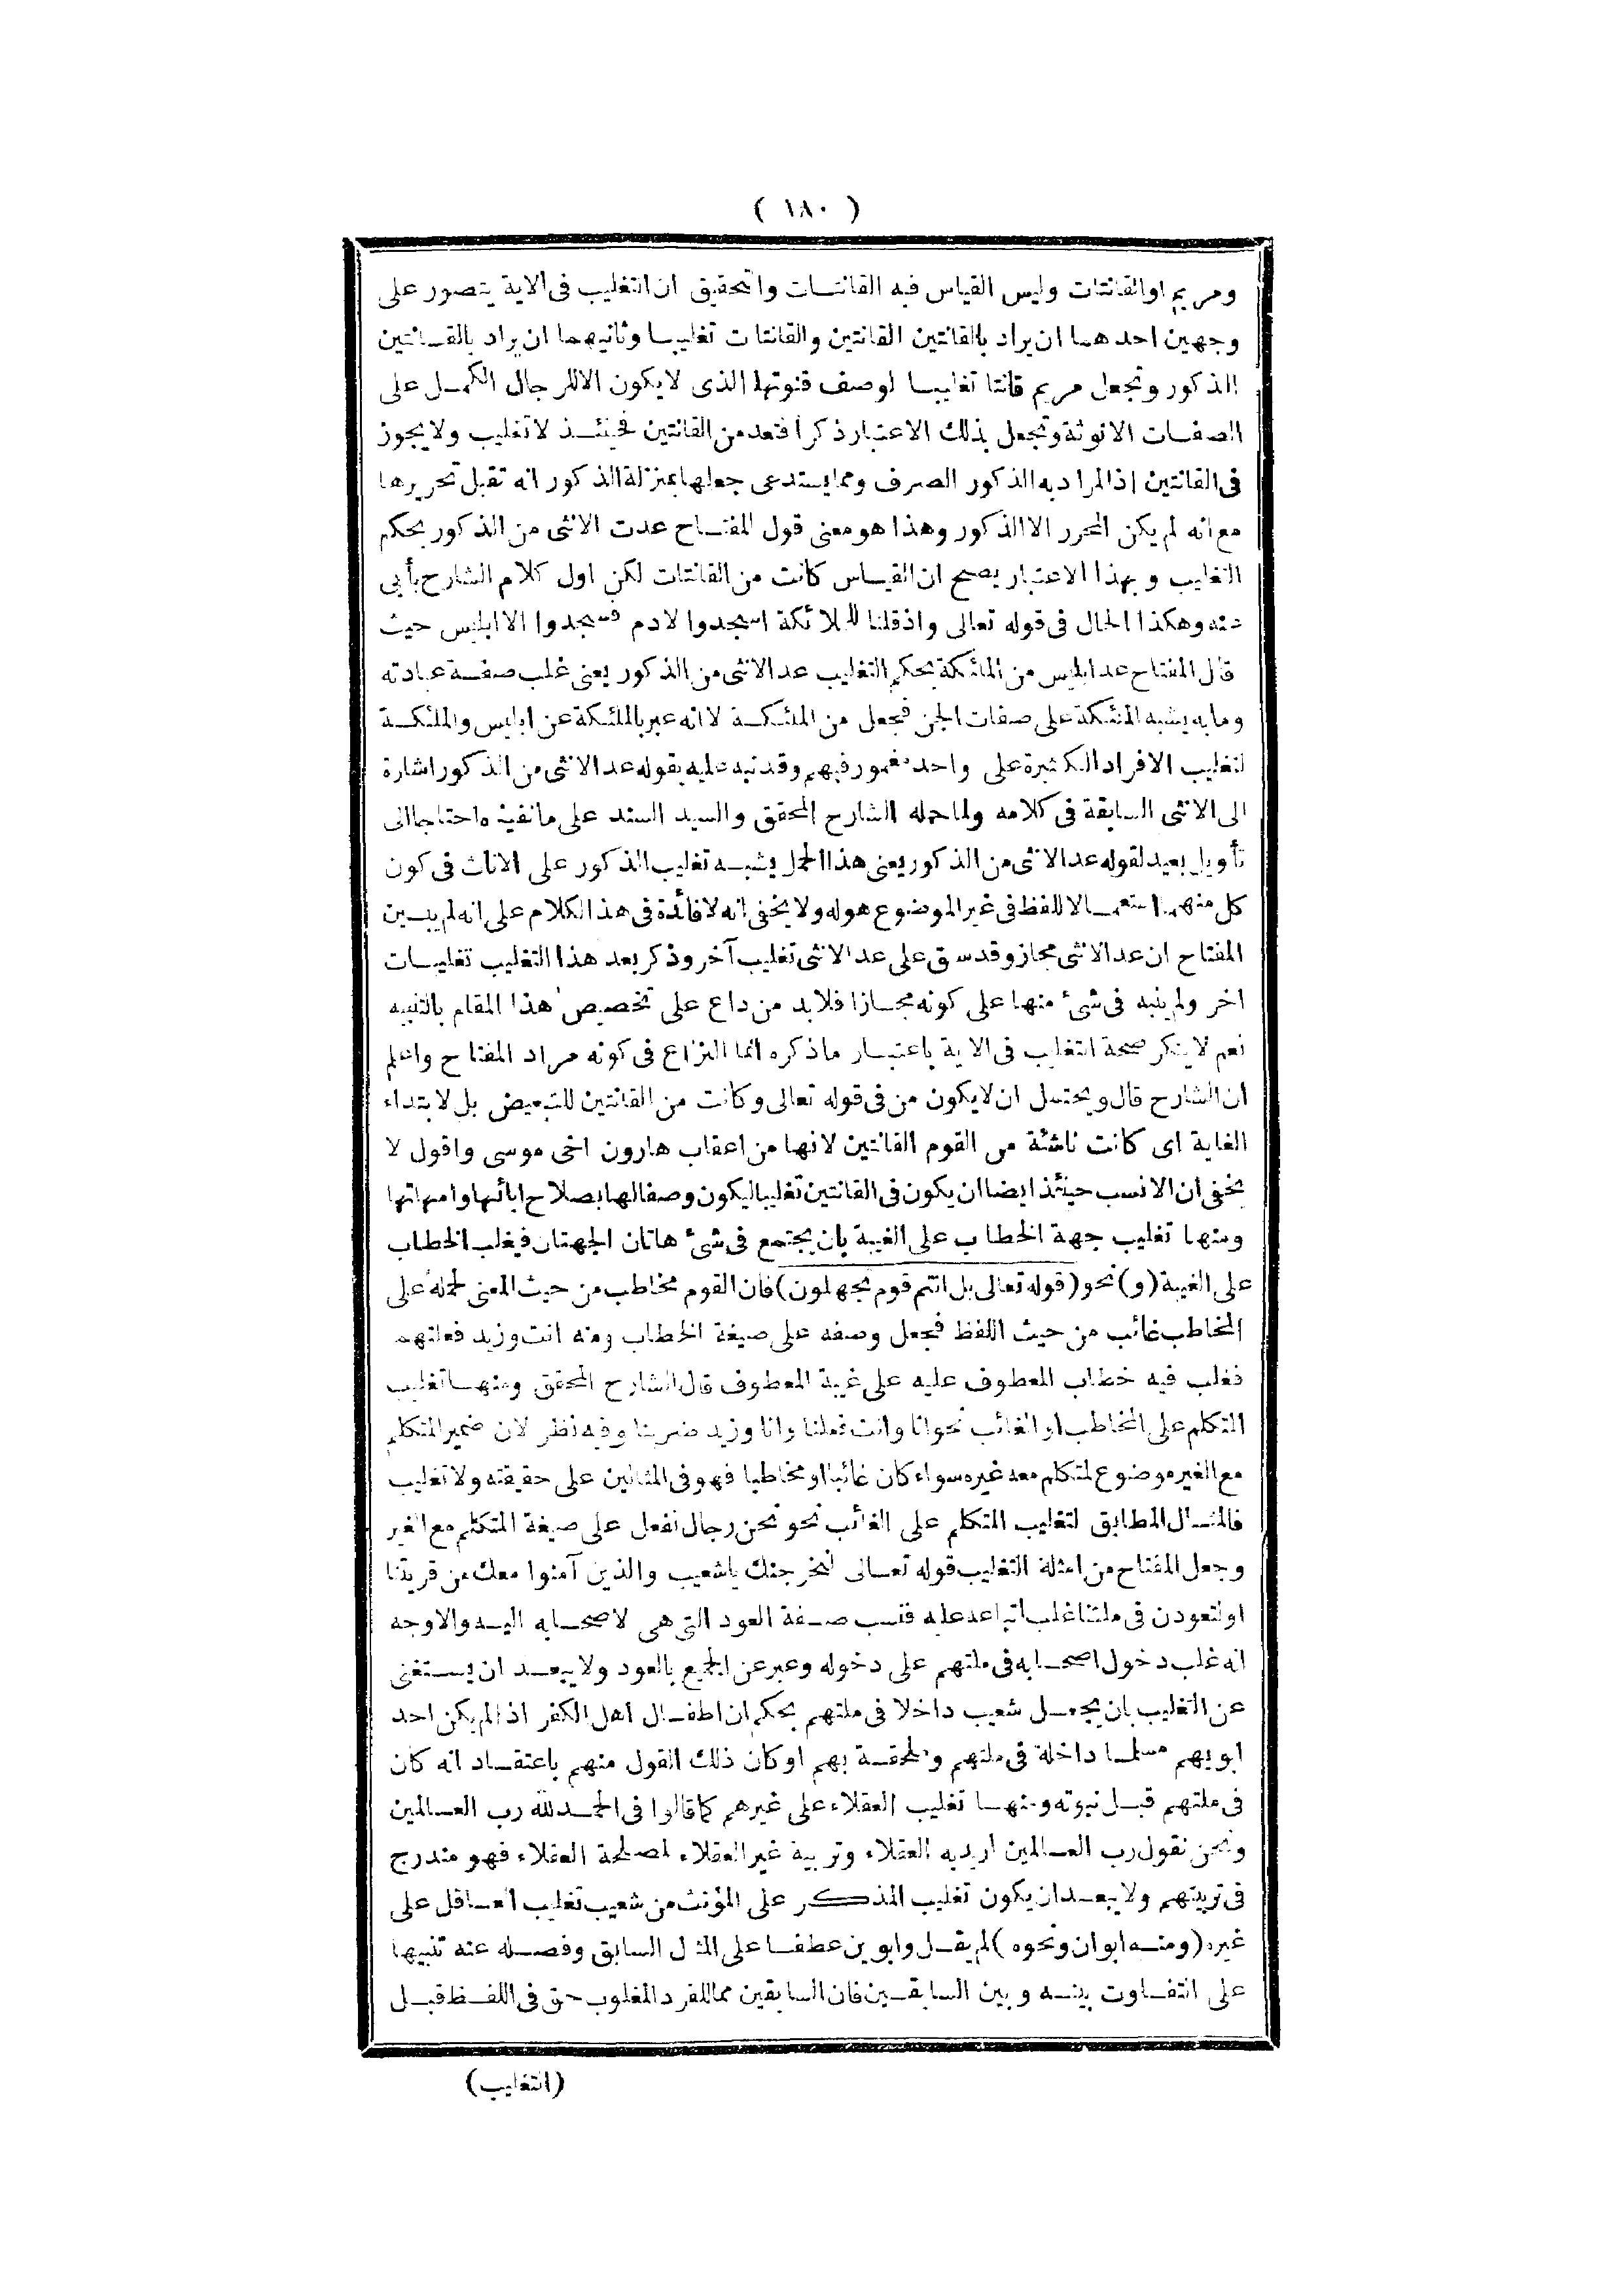 ( ١٨٠ )
ومريم اوالقانتات وليس القياس فيه القانتات والتحقيق ان التغليب فى الاية يتصور على
وجهين احدهما ان يراد بالقانتين القانتين والقانتات تغليبا وثانيهما ان يراد بالقانتين
الذكور وتجعل مريم قانتا تغليبا لوصف قنوتها الذى لايكون الا للرجال الكمل على
الصفات الانوثة وتجعل بذلك الاعتبار ذكرا فتعد من القانتين فحينئذ لا تغليب ولا يجوز
فى القانتين اذ المراد به الذكور الصرف ومما يستدعى جعلها بمنزلة الذكور انه تقبل تحريرها
مع انه لم يكن المحرر الا الذكور وهذا هو معنى قول المفتاح عدت الانثى من الذكور بحكم
التغليب وبهذا الاعتبار يصح ان القياس كانت من القانتات لكن اول كلام الشارح يأبى
عنه وهكذا الحال فى قوله تعالى واذ قلنا للملائكة اسجدوا لادم فسجدوا الا ابليس حيث
قال المفتاح عد ابليس من الملئكة بحكم التغليب عد الانثى من الذكور يعنى غلب صفة عبادته
وما به يشبه الملئكة على صفات الجن فجعل من الملئكة لا انه عبر بالملئكة عن ابليس والملئكة
لتغليب الافراد الكثيرة على واحد مغمور فيهم وقد نبه عليه بقوله عد الانثى من الذكور اشارة
الى الانثى السابقة فى كلامه ولما حمله الشارح المحقق والسيد السند على مانفيناه احتاجا الى
تأويل بعيد لقوله عد الانثى من الذكور يعنى هذا الحمل يشبه تغليب الذكور على الاناث فى كون
كل منهما استعمالا للفظ فى غير الموضوع هوله ولا يخفى انه لا فائدة فى هذا الكلام على انه لم يبين
المفتاح ان عد الانثى مجاز وقد سبق على عد الانثى تغليب آخر وذكر بعد هذا التغليب تغليبات
اخر ولم ينبه فى شئ منها على كونه مجازا فلابد من داع على تخصيص هذا المقام بالتنبيه
نعم لا ينكر صحة التغليب فى الاية باعتبار ماذكره انما النزاع فى كونه مراد المفتاح واعلم
ان الشارح قال ويحتمل ان لايكون من فى قوله تعالى وكانت من القانتين للتبعيض بل لابتداء
الغاية اى كانت ناشئة من القوم القانتين لانها من اعقاب هارون اخى موسى واقول لا
يخفى ان الانسب حينئذ ايضا ان يكون فى القانتين تغليبا ليكون وصفا لها بصلاح ابائها وامهاتها
ومنها تغليب جهة الخطاب على الغيبة بان يجتمع فى شئ هاتان الجهتان فيغلب الخطاب
على الغيبة (و) نحو (قوله تعالى بل انتم قوم تجهلون) فان القوم مخاطب من حيث المعنى لحمله على
المخاطب غائب من حيث اللفظ فجعل وصفه على صيغة الخطاب ومنه انت وزيد فعلتما
فغلب فيه خطاب المعطوف عليه على غيبة المعطوف قال الشارح المحقق ومنها تغليب
المتكلم على المخاطب او الغائب نحو انا وانت فعلنا وانا وزيد ضربنا وفيه نظر لان ضمير المتكلم
مع الغير موضوع لمتكلم معه غيره سواء كان غائبا او مخاطبا فهو فى المثالين على حقيقته ولا تغليب
فالمثال المطابق لتغليب المتكلم على الغائب نحو نحن رجال نفعل على صيغة المتكلم مع الغير
وجعل المفتاح من امثلة التغليب قوله تعالى لنخرجنك ياشعيب والذين آمنوا معك من قريتنا
او لتعودن فى ملتنا غلب اتباعه عليه فنسب صفة العود التى هى لاصحابه اليه والاوجه
انه غلب دخول اصحابه فى ملتهم على دخوله وعبر عن الجميع بالعود ولا يبعد ان يستغنى
عن التغليب بان يجعل شعيب داخلا فى ملتهم بحكم ان اطفال اهل الكفر اذا لم يكن احد
ابويهم مسلما داخلة فى ملتهم وملحقة بهم او كان ذلك القول منهم باعتقاد انه كان
فى ملتهم قبل نبوته ومنها تغليب العقلاء على غيرهم كما قالوا فى الحمد لله رب العالمين
ونحن نقول رب العالمين اريد به العقلاء وتربية غير العقلاء لمصلحة العقلاء فهو مندرج
فى تربيتهم ولا يبعد ان يكون تغليب المذكر على المؤنث من شعيب تغليب العاقل على
غيره (ومنه ابوان ونحوه) لم يقل وابوين عطفا على المثال السابق وفصله عنه تنبيها
على التفاوت بينه وبين السابقين فان السابقين مما للفرد المغلوب حق فى اللفظ قبل
(التغليب)